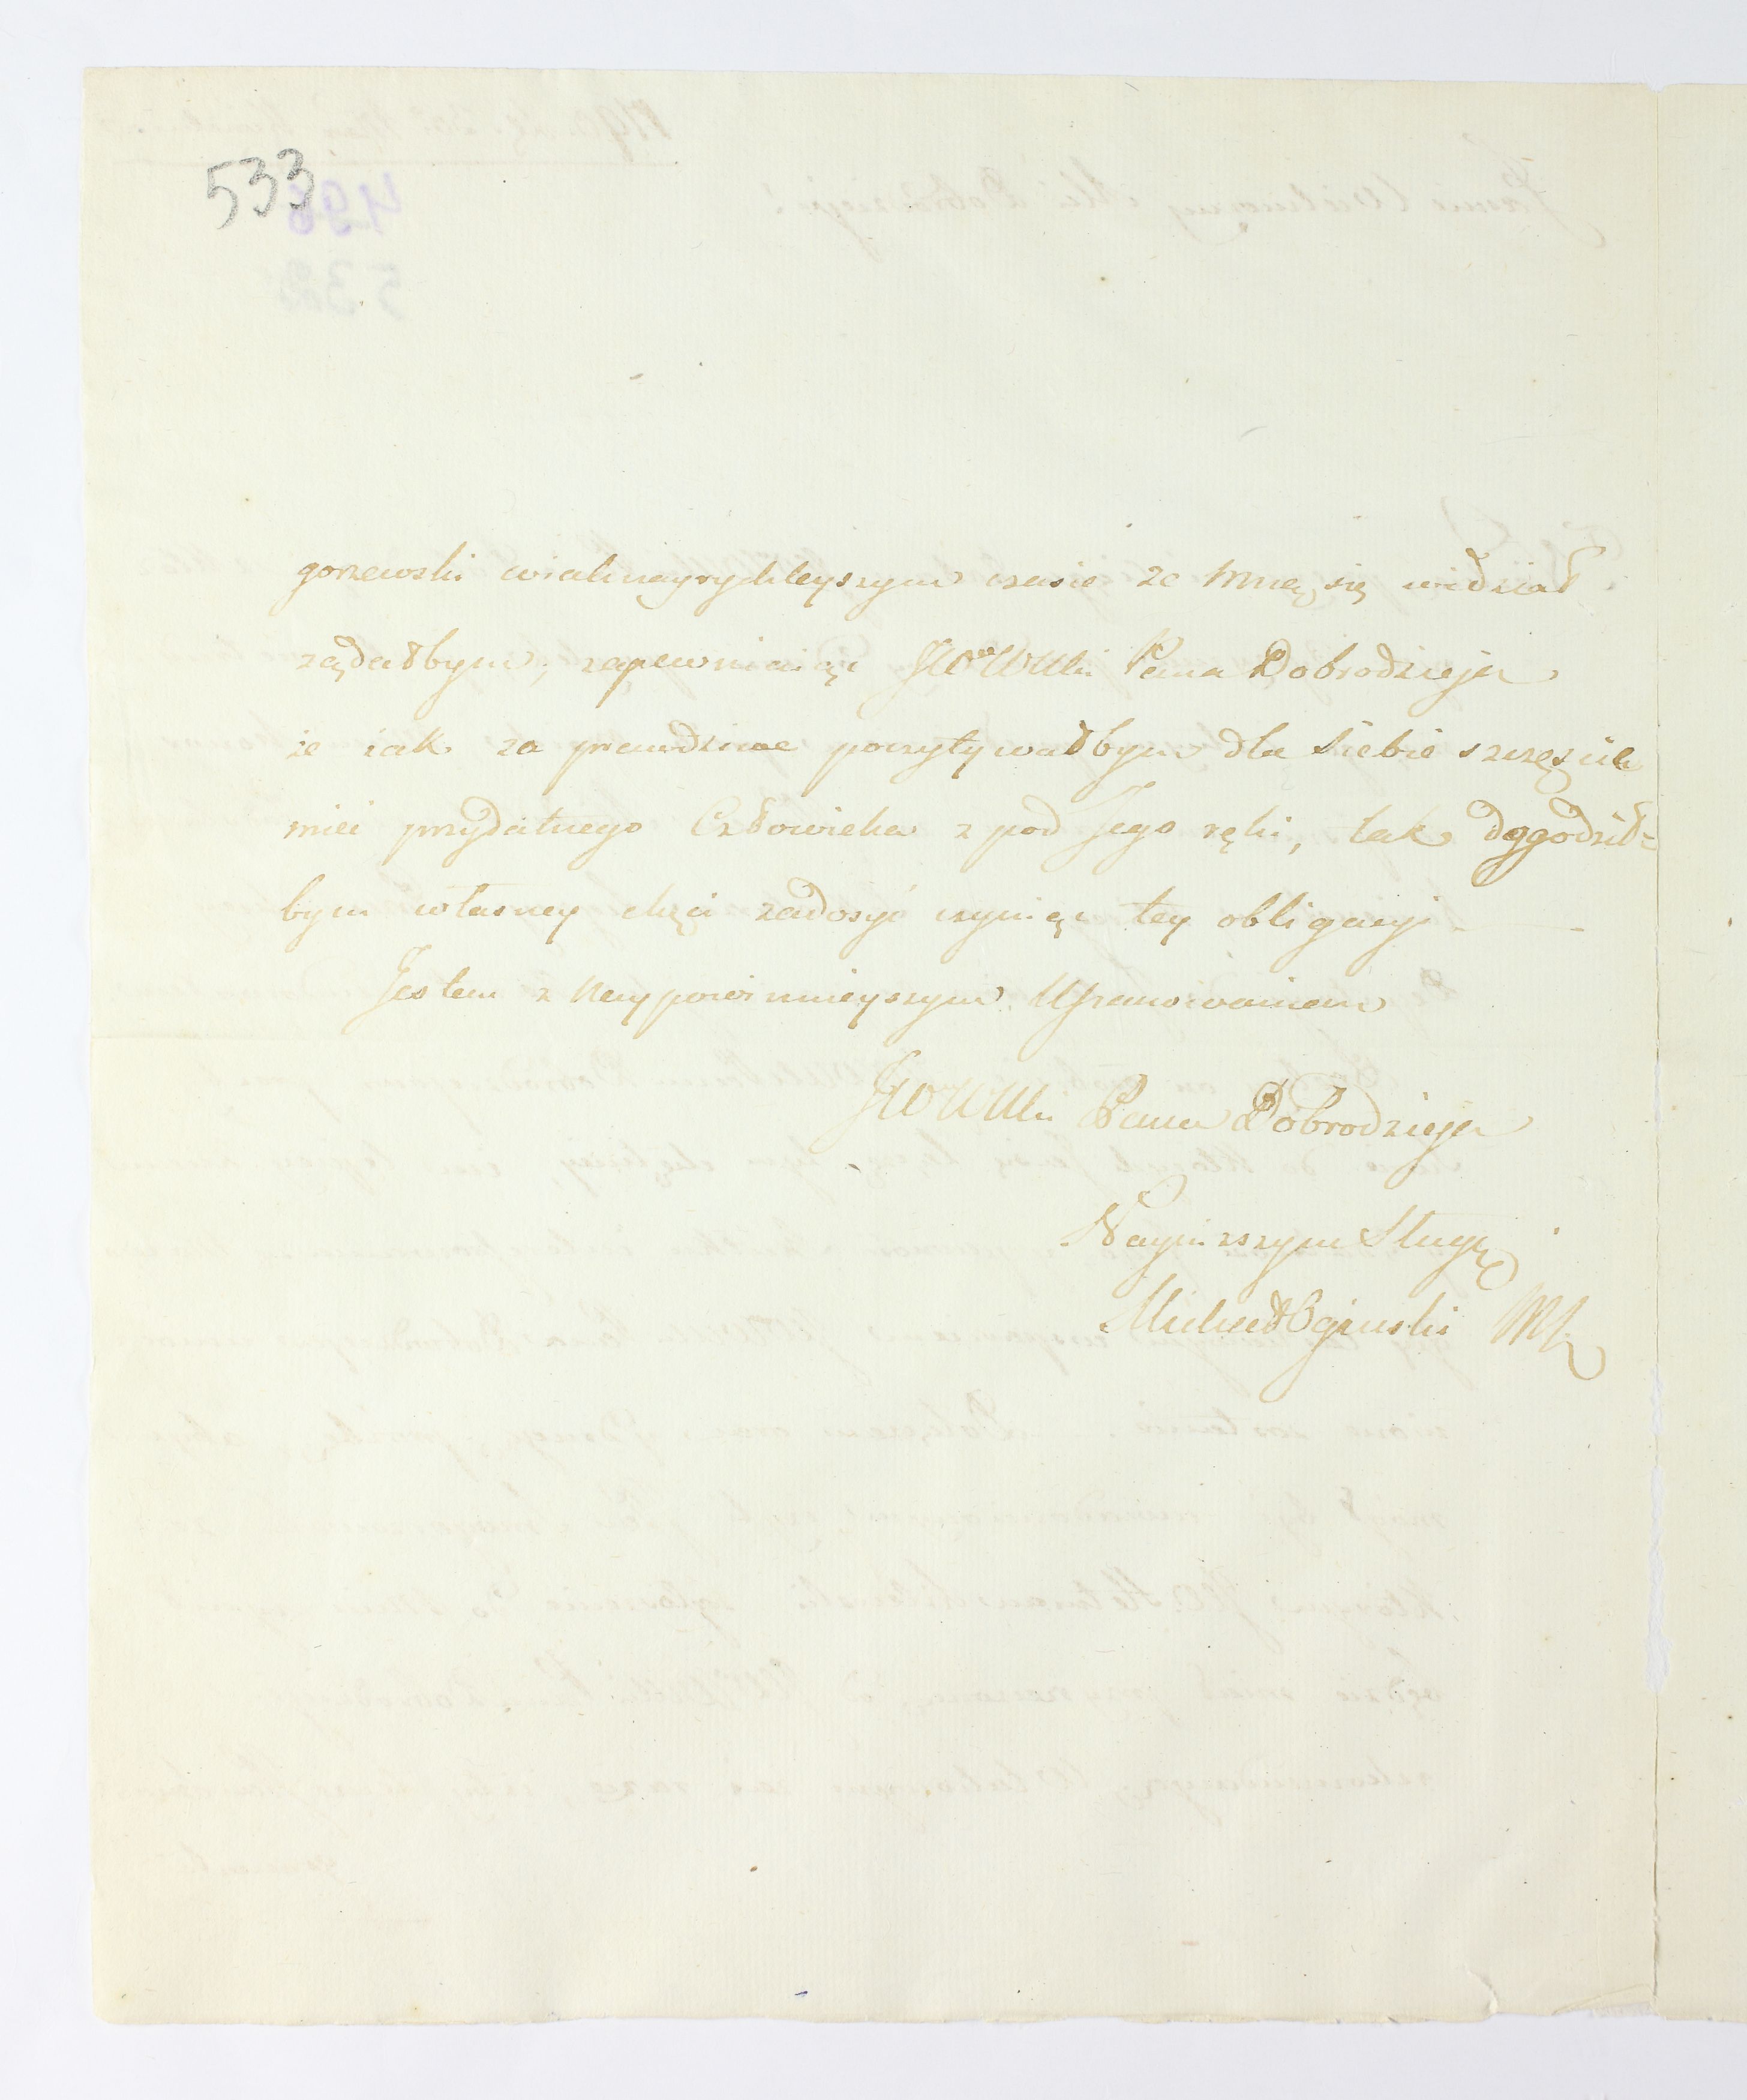 533
gorzewski wiaknayrychleyszym czasie ze mną się widział
ządałbym, zapewniaiąc JWWMći Pana Dobrodzieja
że iak za prawdziwe poczytywałbym dla siebie szczęście
mieć przydatnego Człowieka z pod Jego ręki, tak dogodził=
bym własney chęci zadosyć czyniąc tey obligacyi.
Jestem z naypowinnieyszym Uszanowaniem
JWWMći Pana Dobrodzieja
Nayniższym Sługą
Michał Ogiński